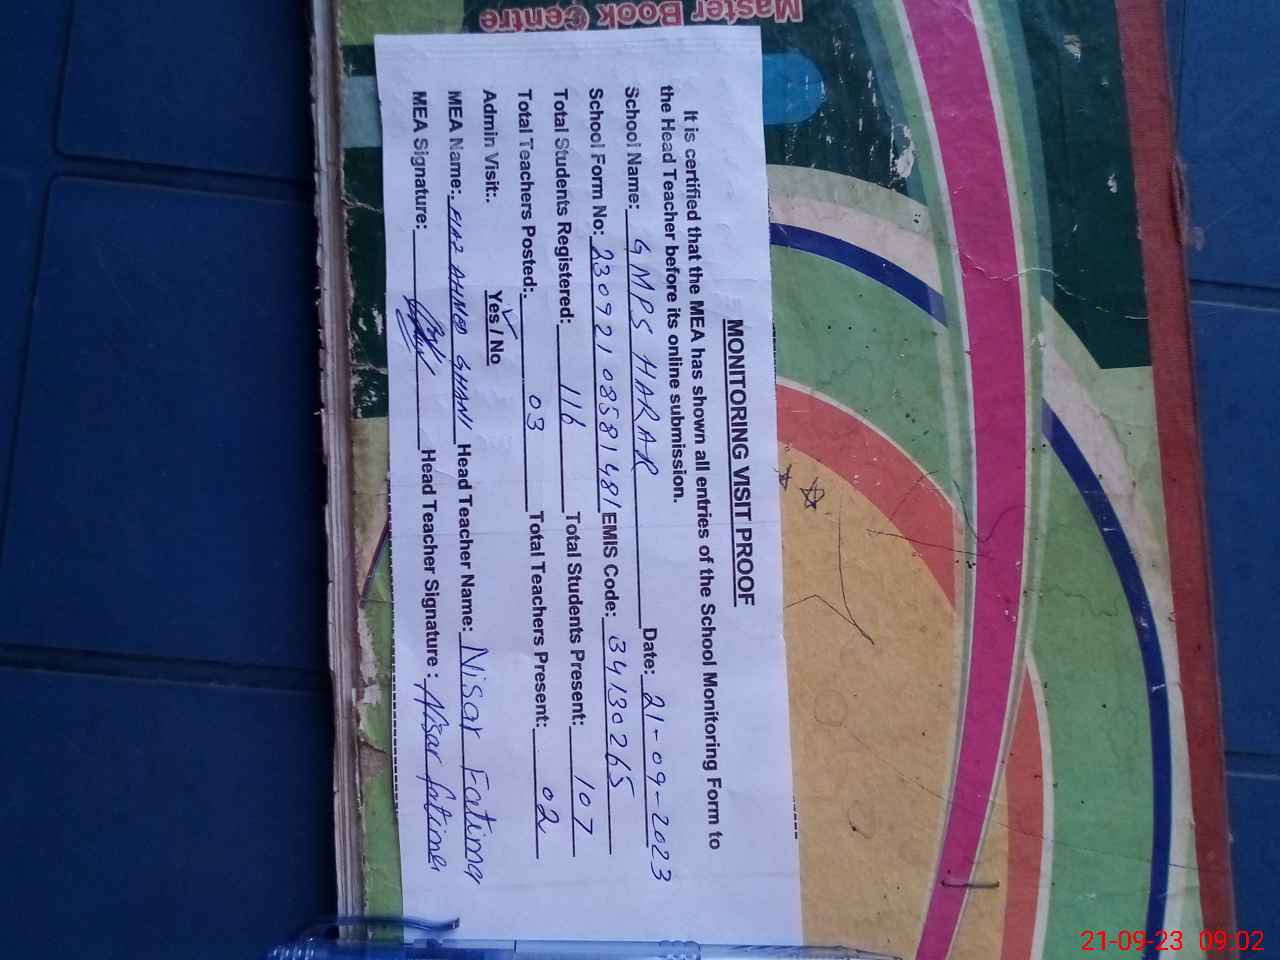 Master Book Centre
MONITORING VISIT PROOF
It is certified that the MEA has shown all entries of the School Monitoring Form to
the Head Teacher before its online submission.
School Name: GMPS HARAR Date: 21-09-2023
School Form No: 23092108581481 EMIS Code: 34130265
Total Students Registered: 116 Total Students Present: 107
Total Teachers Posted: 03 Total Teachers Present: 02
Admin Visit: Yes / No
MEA Name: FIAZ AHMED GHANI Head Teacher Name: Nisar Fatima
MEA Signature: Head Teacher Signature: Nisar Fatima
21-09-23 09:02